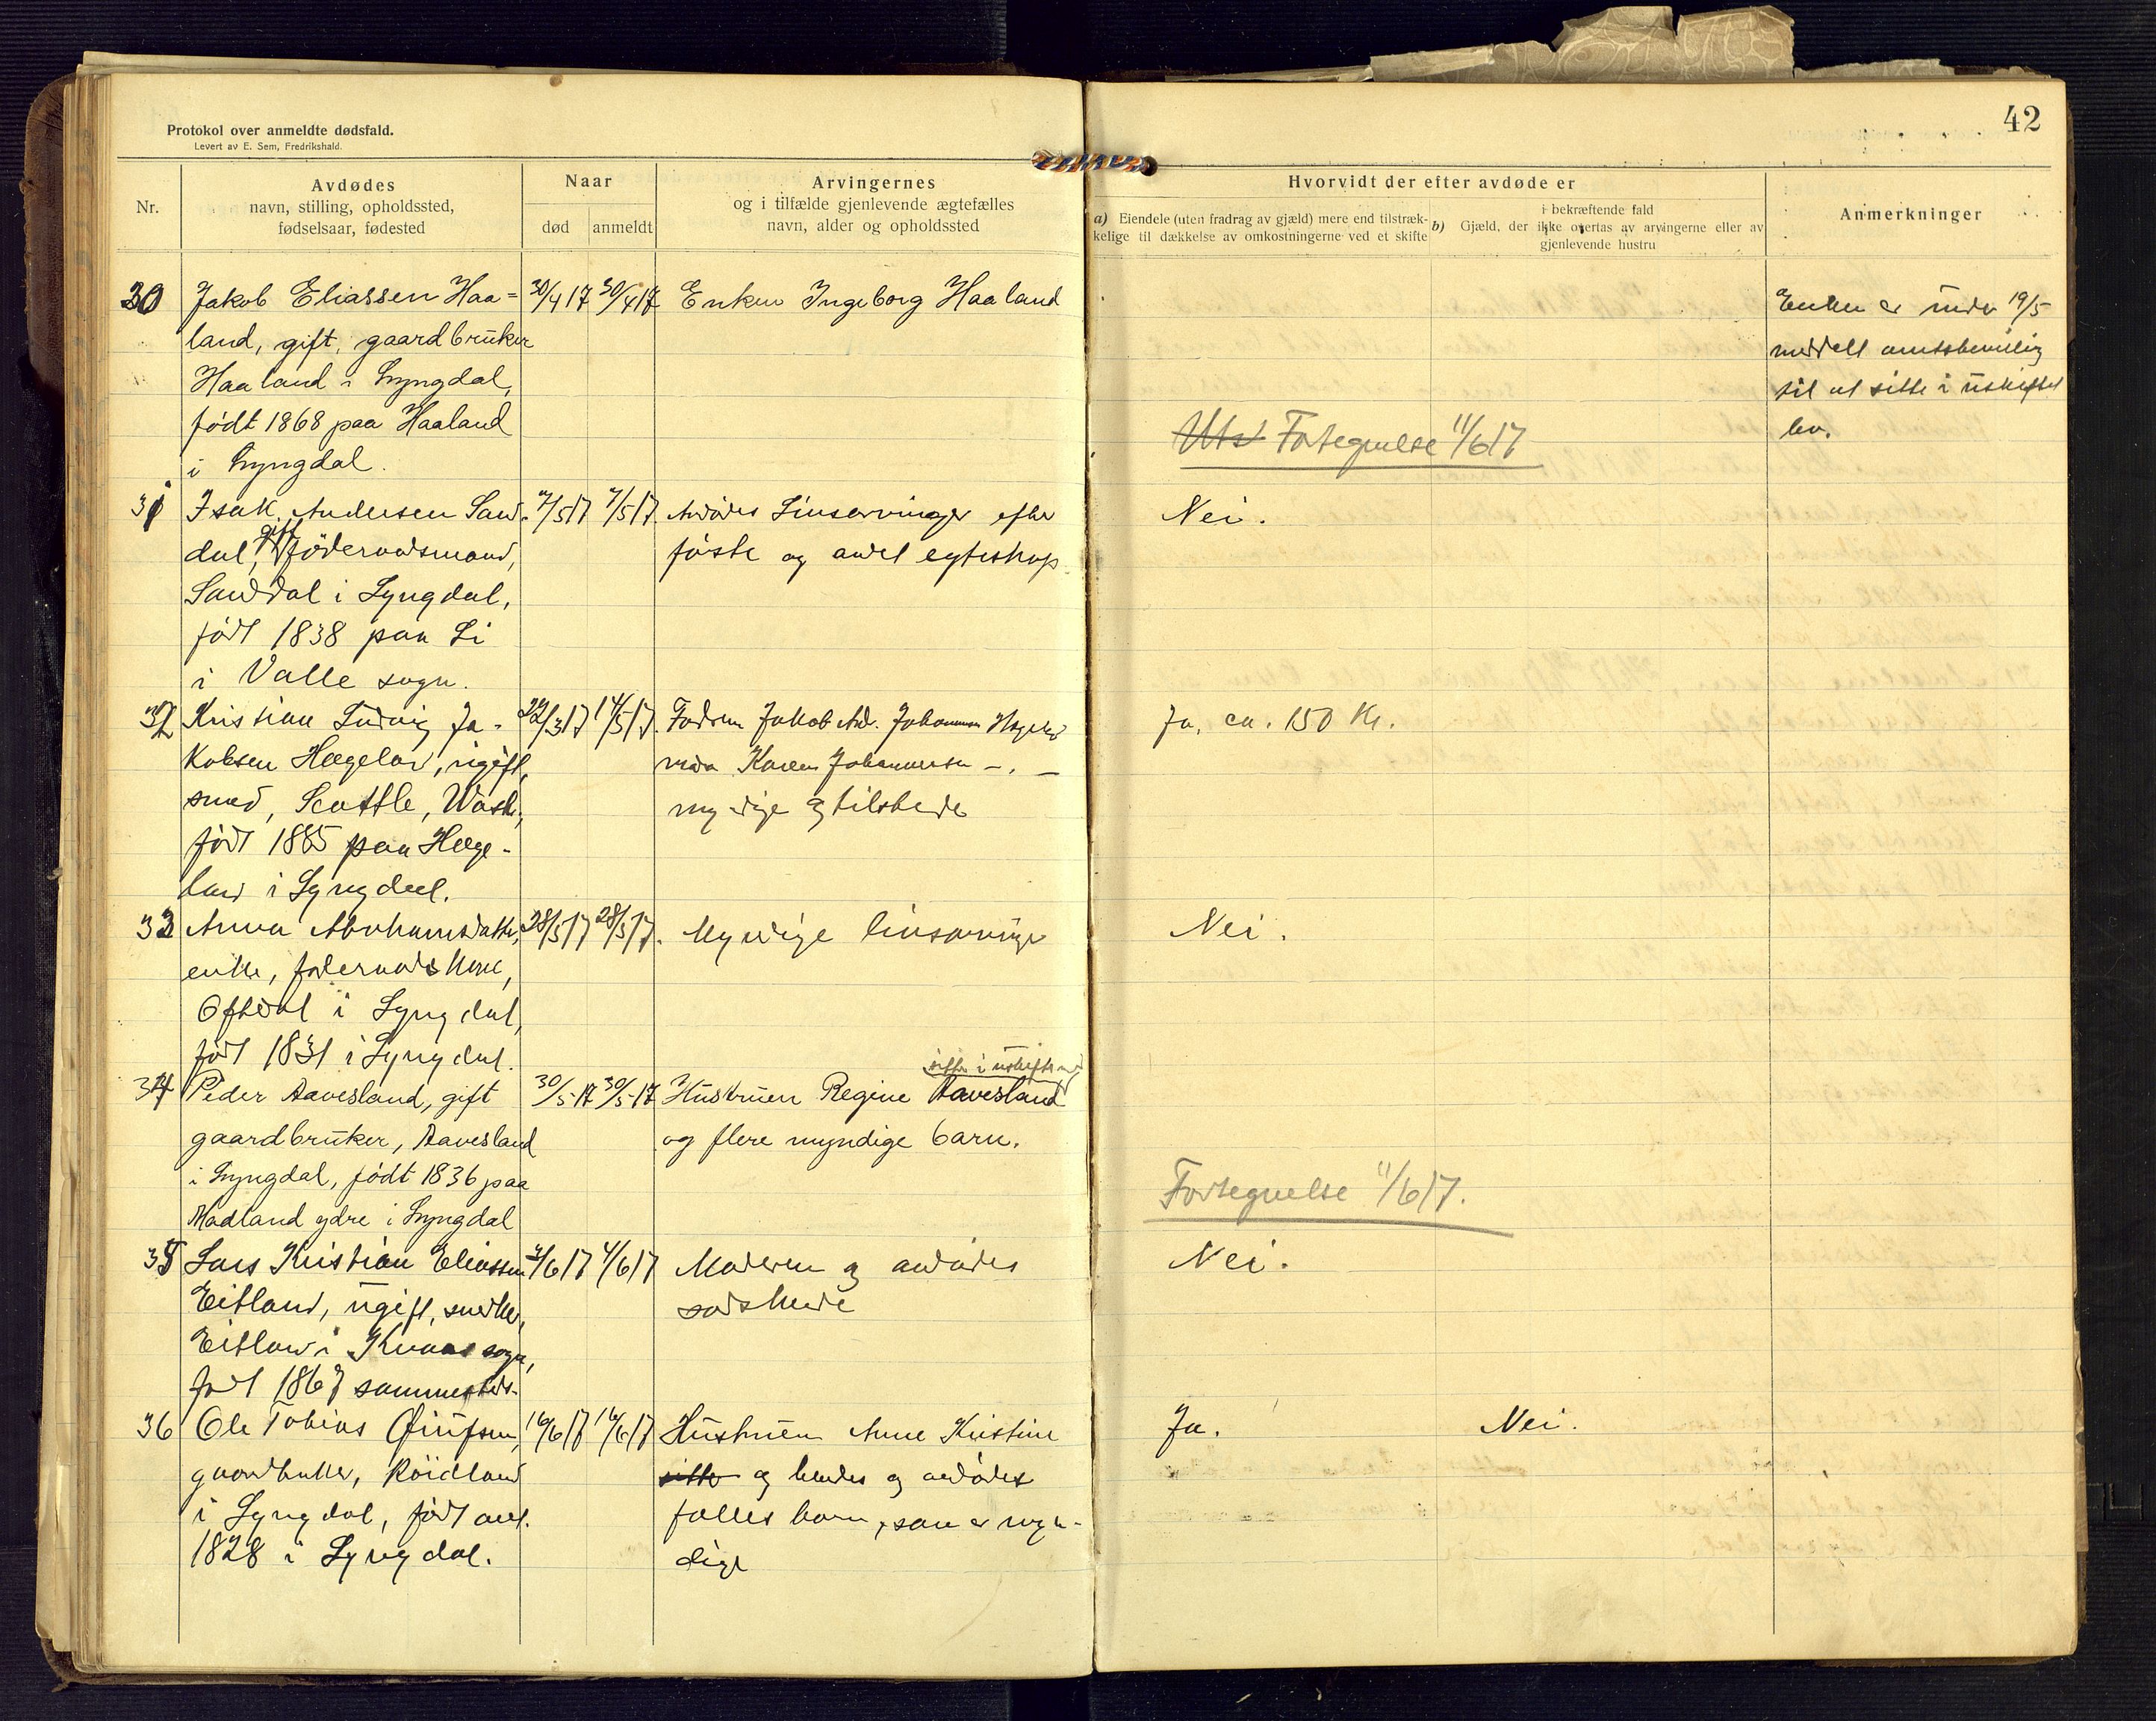 42
Protokol over anmeldte dødsfald.
Levert av E. Sem, Fredrikshald.
Nr.
Avdødes
navn, stilling, opholdssted,
fødselsaar, fødested
Naar
død
anmeldt
Arvingernes
og i tilfælde gjenlevende ægtefælles
navn, alder og opholdssted
Hvorvidt der efter avdøde er
a) Eiendele (uten fradrag av gjæld) mere end tilstræk-
kelige til dækkelse av omkostningerne ved et skifte
i bekræftende fald
b) Gjæld, der ikke overtas av arvingerne eller av
gjenlevende hustru
Anmerkninger
30
Jakob Eliassen Haa=
land, gift, gaardbruker
Haaland i Lyngdal,
født 1868 paa Haaland
i Lyngdal.
30/4 17
30/4 17
Enken Ingeborg Haaland
Fortegnelse 11/6 17
Enken er under 19/5
meddelt amtsbevillig
til at sitte i uskiftet
bo.
31
Isak Andersen Sand-
dal, gift føderaadsmand,
Sanddal i Lyngdal,
født 1838 paa Li
i Valle sogn.
7/5 17
7/5 17.
Avdødes Livsarvinger efter
første og andet egteskap
Nei.
32
Kristian Ludvig Ja-
kobsen Hægeland, ugift,
smed, Seattle, Wash.,
født 1885 paa Hæge-
land i Lyngdal.
22/3 17
14/5 17.
Faderen Jakob And. Johannesen Hægeland
Karen Johannesen -,-
myndige og tilstede
Ja, ca. 150 Kr.
33
Anna Abrahamsdatter,
enke, føderaadskone,
Oftedal i Lyngdal,
født 1831 i Lyngdal.
28/5 17
28/5 17.
Myndige livsarvinger
Nei.
34
Peder Aavesland, gift
gaardbruker, Aavesland
i Lyngdal, født 1836 paa
Madland ydre i Lyngdal
30/5-17
30/5-17
sitter i uskiftet
Hustruen Regine Aavesland
og flere myndige barn.
Fortegnelse 11/6 17.
35
Lars Kristian Eliassen
Eitland, ugift, snedker,
Eitland i Kvaas sogn,
født 1867 sammesteds.
4/6 17
Moderen og avdødes
søskende
Nei.
36
Ole Tobias
gaardbruker, Røidland
i Lyngdal, født
1828 i Lyngdal.
16/6 17
16/6 17
Hustruen Anne Kristine
sitter og hendes og avdødes
fælles barn, som er myn-
dige
Ja.
Nei.